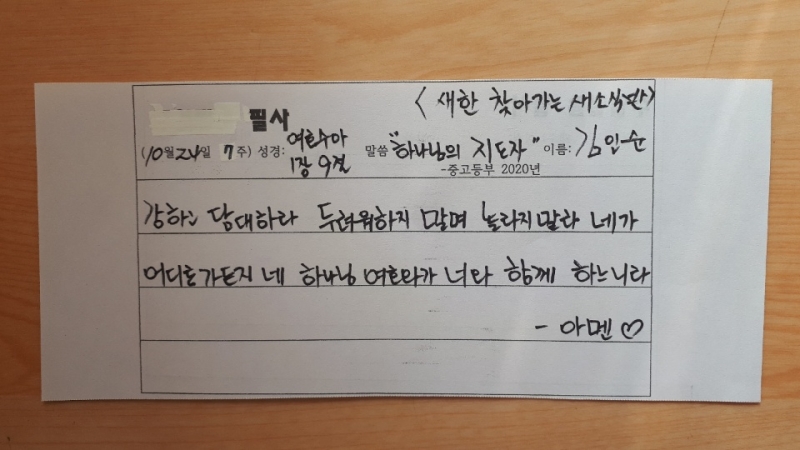 <새한 찾아가는 새소식반>
필사
(10월 24일 7주) 성경: 여호수아 1장 9절 말씀 "하나님의 지도자" 이름: 김인순
-중고등부 2020년
강하고 담대하라 두려워하지 말며 놀라지말라 네가
어디로가든지 네 하나님 여호와가 너와 함께 하느니라
- 아멘♡